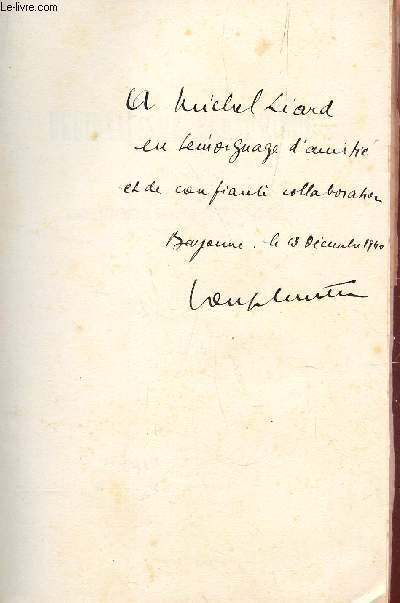 Le-livre.com
A Michel Liard
en témoignage d'amitié
et de confiante collaboration
Bayonne. le 13 Décembre 1940